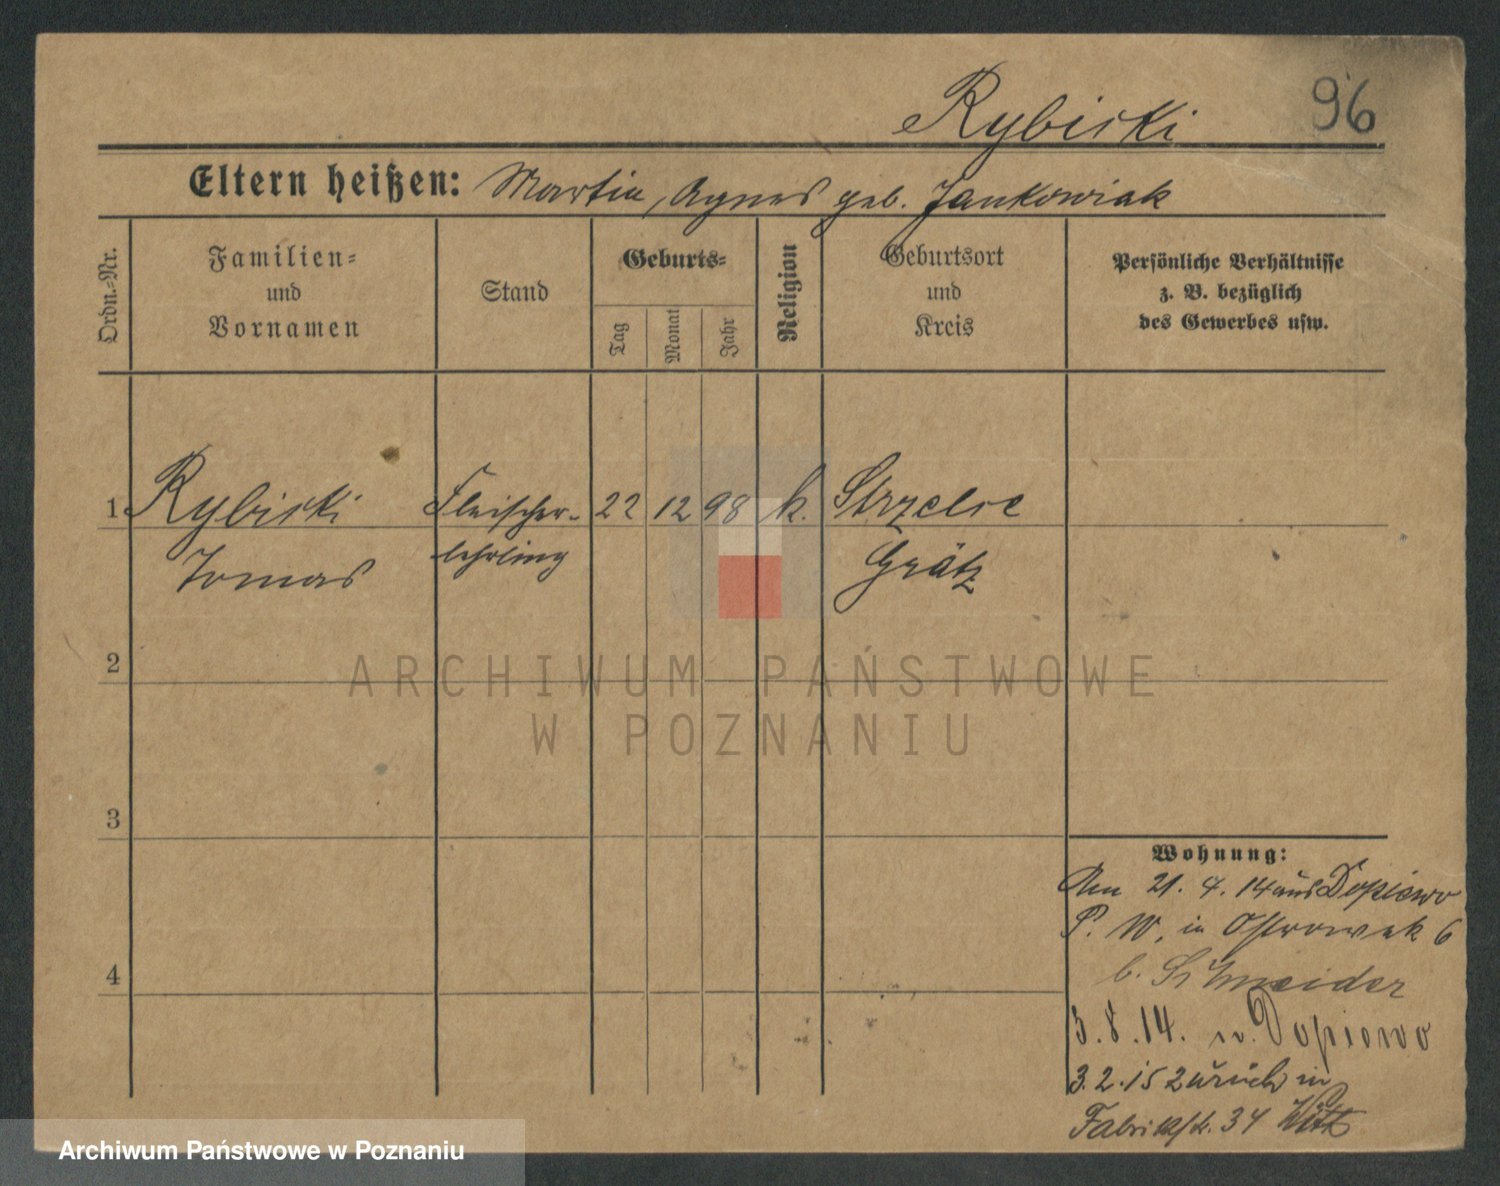 Rybiski 96
Eltern heißen: Martin, Agnes geb. Jankowiak
Ordn.-Nr.
Familien-
und
Vornamen
Stand
Geburts-
Tag
Monat
Jahr
Religion
Geburtsort
und
Kreis
Persönliche Verhältnisse
z. B. bezüglich
des Gewerbes usw.
1 Rybiski Fleischer- 22 12 98 k. Strzelce
Tomas lehrling Grätz
2
ARCHIWUM PAŃSTWOWE
W POZNANIU
3
Wohnung:
Am 21. 4. 14 aus Dopiewo
P. W. in Ostrowek 6
b. Schneider
3.8.14. n. Dopiewo
3.2.15 zurück in
Fabrikstr. 34 Witt
4
Archiwum Państwowe w Poznaniu